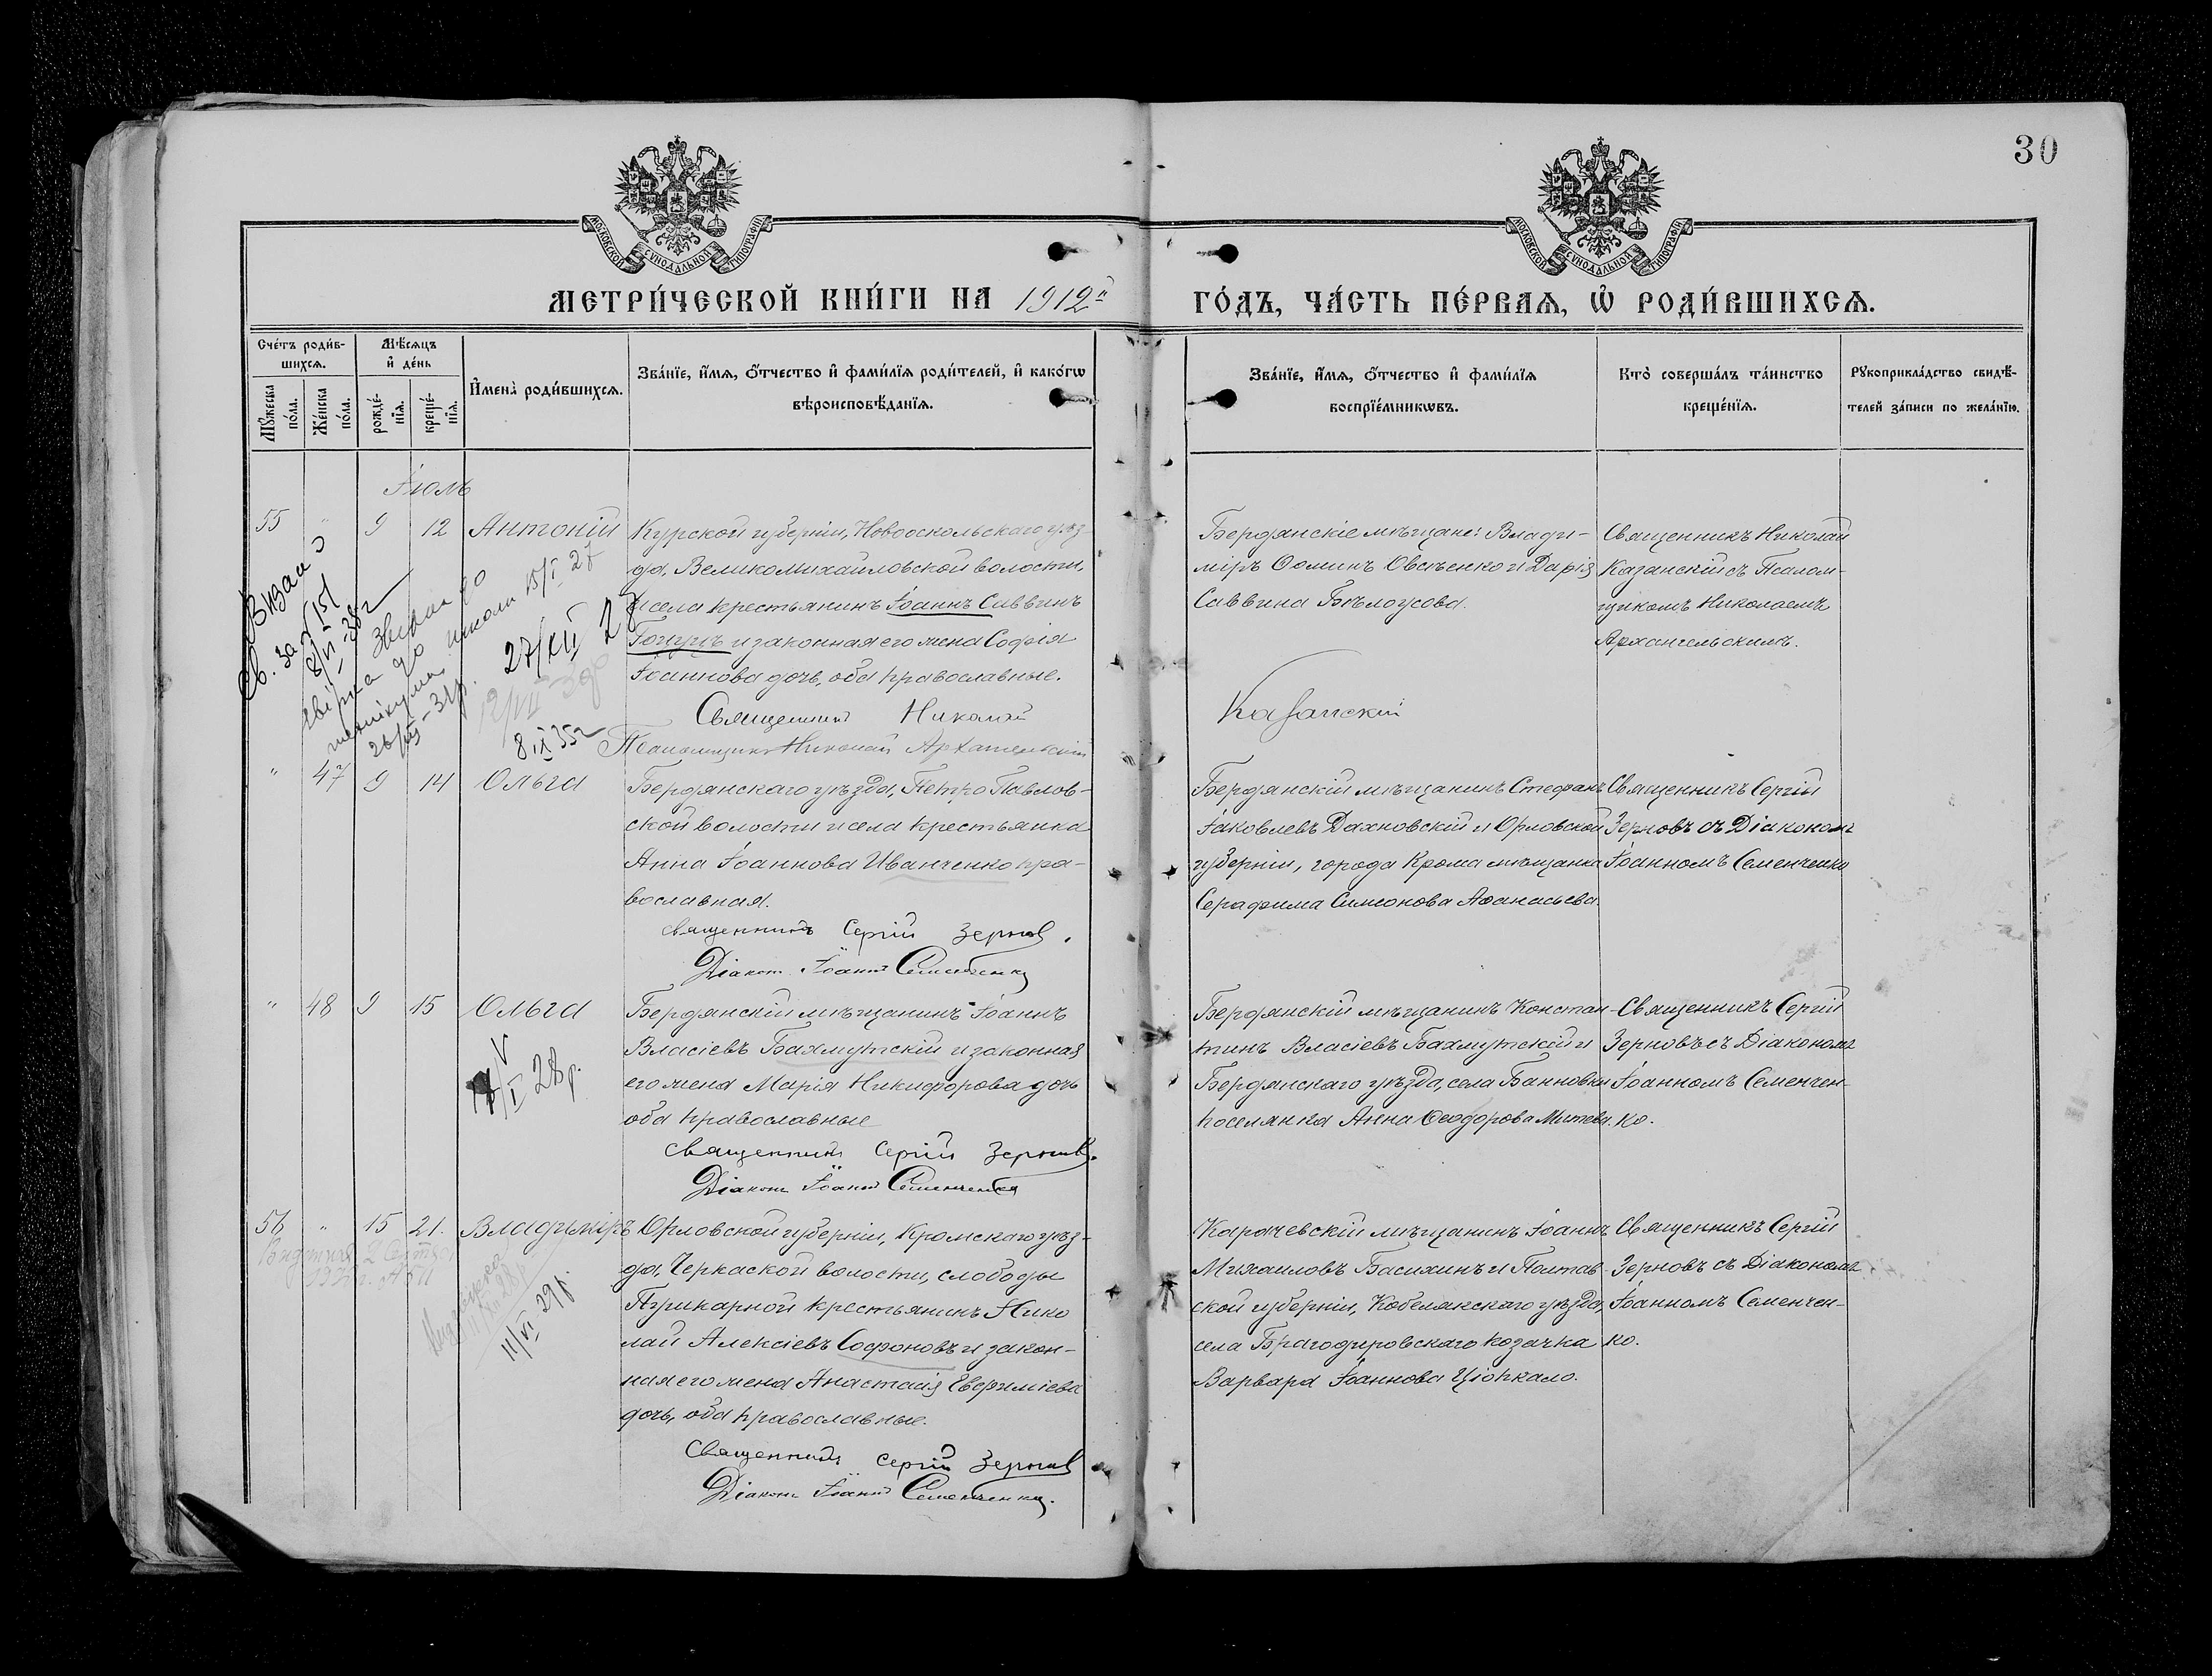 30
МОСКОВСКОЙ СУНОДАЛЬНОЙ ТИПОГРАФІИ
МОСКОВСКОЙ СУНОДАЛЬНОЙ ТИПОГРАФІИ
МЕТРИ́ЧЕСКОЙ КНИ́ГИ НА 1912й
ГО́ДЪ, ЧА́СТЬ ПЕ́РВАѦ, Ѡ҆ РОДИ́ВШИХСѦ.
Сче́тъ роди́в-
шихсѧ.
Мѹжеска по́ла.
Же́нска по́ла.
Мѣ́сѧцъ
и҆ де́нь
рожде́-
нїѧ.
креще́-
нїѧ.
И҆мена̀ роди́вшихсѧ.
Зва́нїе, и҆́мѧ, ѻ҆́тчество и҆ фами́лїѧ роди́телей, и҆ како́гѡ
вѣроисповѣ́данїѧ.
Зва́нїе, и҆́мѧ, ѻ҆́тчество и҆ фами́лїѧ
воспрїе́мникѡвъ.
Кто̀ соверша́лъ та́инство
креще́нїѧ.
Рѹкоприкла́дство свидѣ́-
телей за́писи по жела́нїю.
Іюль
55 " 9 12 Антоній
Курской губерніи, Новооскольскаго уѣз-
да, Великомихайловской волости,
и села крестьянинъ Іоаннъ Саввинъ
и законная его жена Софія
Іоаннова дочь, оба православные.
Священникъ Николай Казанскій
Псаломщикъ Николай Архангельскій
Бердянскіе мѣщане: Влади-
міръ Ѳоминъ Овсѣенко и Дарія
Саввина Бѣлоусова.
Священникъ Николай
Казанскій съ Псалом-
щикомъ Николаемъ
Архангельскимъ.
15/I 27
27/XII 27
26/III-31р.
8/VI-38г
8 IX 35г
" 47 9 14 Ольга
Бердянскаго уѣзда, Петро Павлов-
ской волости и села крестьянка
Анна Іоаннова Иванченко пра-
вославная.
Священникъ Сергій Зерновъ.
Діаконъ Іоаннъ Семенченко
Бердянскій мѣщанинъ Стефанъ
Іаковлевъ Дахновскій и Орловской
губерніи, города Крома мѣщанка
Серафима Симеонова Аѳанасьева.
Священникъ Сергій
Зерновъ съ Діакономъ
Іоанномъ Семенченко
" 48 9 15 Ольга
Бердянскій мѣщанинъ Іоаннъ
Власіевъ Бахмутскій и законная
его жена Марія Никифорова дочь
оба православные
Священникъ Сергій Зерновъ.
Діаконъ Іоаннъ Семенченко
Бердянскій мѣщанинъ Констан-
тинъ Власіевъ Бахмутскій и
Бердянскаго уѣзда, села Банновки
поселянка Анна Ѳеодорова Митева.
Священникъ Сергій
Зерновъ съ Діакономъ
Іоанномъ Семенчен-
ко.
28р.
56 " 15 21. Владиміръ
Орловской губерніи, Кромскаго уѣз-
да, Черкаской волости, слободы
крестьянинъ Нико
лай Алексіевъ Софоновъ и закон-
ная его жена Анастасія Евфиміева
дочь, оба православные.
Священникъ Сергій Зерновъ
Діаконъ Іоаннъ Семенченко.
Карачевскій мѣщанинъ Іоаннъ
Михаиловъ Басихинъ и Полтав-
ской губерніи, Кобелякскаго уѣзда,
села козачка
Варвара Іоаннова
Священникъ Сергій
Зерновъ съ Діакономъ
Іоанномъ Семенчен-
ко.
11/VI 29р.